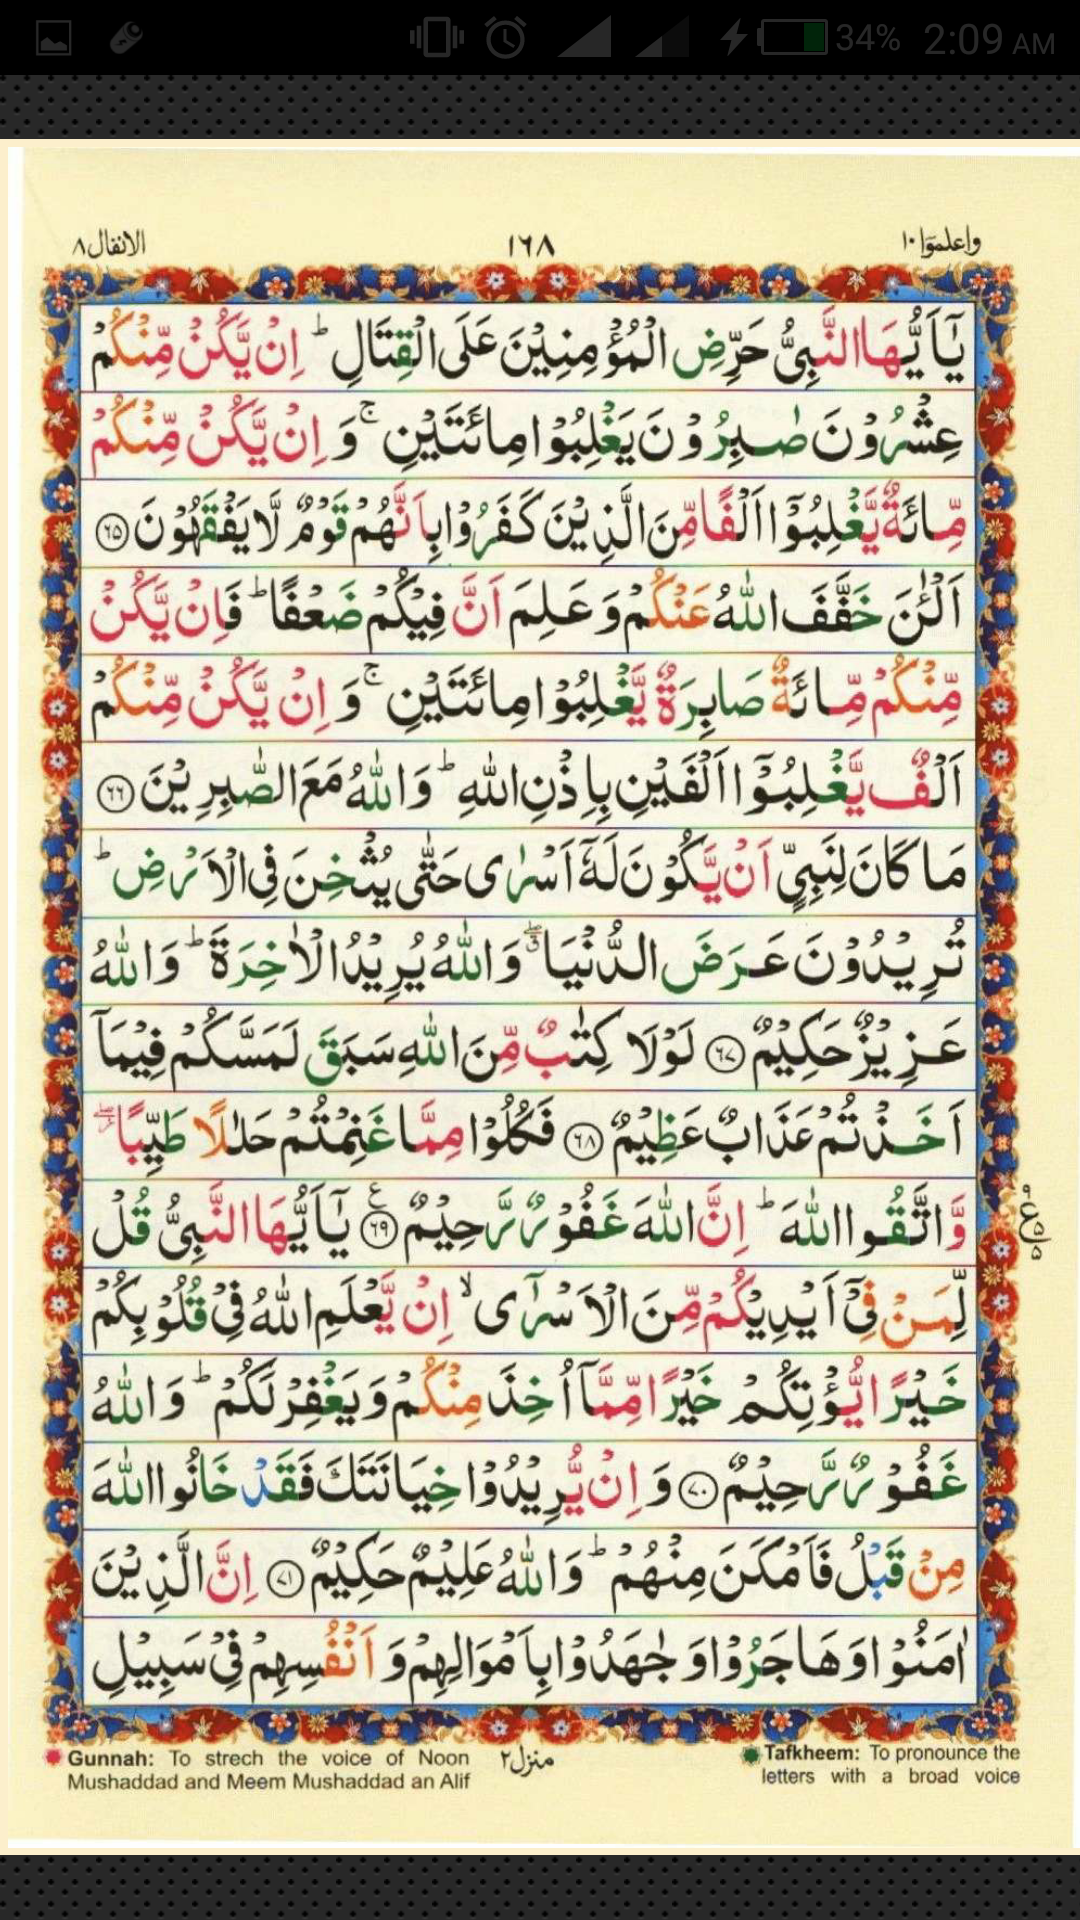 34% 2:09 AM
الانفال ٨ ١٦٨ واعلموٓا ١٠
يٰۤاَيُّهَا النَّبِىُّ حَرِّضِ الْمُؤْمِنِيْنَ عَلَى الْقِتَالِ ؕ اِنْ يَّكُنْ مِّنْكُمْ
عِشْرُوْنَ صٰبِرُوْنَ يَغْلِبُوْا مِائَتَيْنِ ۚ وَ اِنْ يَّكُنْ مِّنْكُمْ
مِّائَةٌ يَّغْلِبُوْۤا اَلْفًا مِّنَ الَّذِيْنَ كَفَرُوْا بِاَنَّهُمْ قَوْمٌ لَّا يَفْقَهُوْنَ ٦٥
اَلْـٰٔنَ خَفَّفَ اللّٰهُ عَنْكُمْ وَ عَلِمَ اَنَّ فِيْكُمْ ضَعْفًا ؕ فَاِنْ يَّكُنْ
مِّنْكُمْ مِّائَةٌ صَابِرَةٌ يَّغْلِبُوْا مِائَتَيْنِ ۚ وَ اِنْ يَّكُنْ مِّنْكُمْ
اَلْفٌ يَّغْلِبُوْۤا اَلْفَيْنِ بِاِذْنِ اللّٰهِ ؕ وَ اللّٰهُ مَعَ الصّٰبِرِيْنَ ٦٦
مَا كَانَ لِنَبِىٍّ اَنْ يَّكُوْنَ لَهٗۤ اَسْرٰى حَتّٰى يُثْخِنَ فِى الْاَرْضِ ؕ
تُرِيْدُوْنَ عَرَضَ الدُّنْيَا ۖ وَ اللّٰهُ يُرِيْدُ الْاٰخِرَةَ ؕ وَ اللّٰهُ
عَزِيْزٌ حَكِيْمٌ ٦٧ لَوْلَا كِتٰبٌ مِّنَ اللّٰهِ سَبَقَ لَمَسَّكُمْ فِيْمَاۤ
اَخَذْتُمْ عَذَابٌ عَظِيْمٌ ٦٨ فَكُلُوْا مِمَّا غَنِمْتُمْ حَلٰلًا طَيِّبًا ۖ
وَّ اتَّقُوا اللّٰهَ ؕ اِنَّ اللّٰهَ غَفُوْرٌ رَّحِيْمٌ ٦٩ يٰۤاَيُّهَا النَّبِىُّ قُلْ
لِّمَنْ فِىْۤ اَيْدِيْكُمْ مِّنَ الْاَسْرٰۤى ۙ اِنْ يَّعْلَمِ اللّٰهُ فِىْ قُلُوْبِكُمْ
خَيْرًا يُّؤْتِكُمْ خَيْرًا مِّمَّاۤ اُخِذَ مِنْكُمْ وَ يَغْفِرْ لَكُمْ ؕ وَ اللّٰهُ
غَفُوْرٌ رَّحِيْمٌ ٧٠ وَ اِنْ يُّرِيْدُوْا خِيَانَتَكَ فَقَدْ خَانُوا اللّٰهَ
مِنْ قَبْلُ فَاَمْكَنَ مِنْهُمْ ؕ وَ اللّٰهُ عَلِيْمٌ حَكِيْمٌ ٧١ اِنَّ الَّذِيْنَ
اٰمَنُوْا وَ هَاجَرُوْا وَ جٰهَدُوْا بِاَمْوَالِهِمْ وَ اَنْفُسِهِمْ فِىْ سَبِيْلِ
Gunnah: To strech the voice of Noon
Mushaddad and Meem Mushaddad an Alif
منزل ٢
Tafkheem: To pronounce the
letters with a broad voice